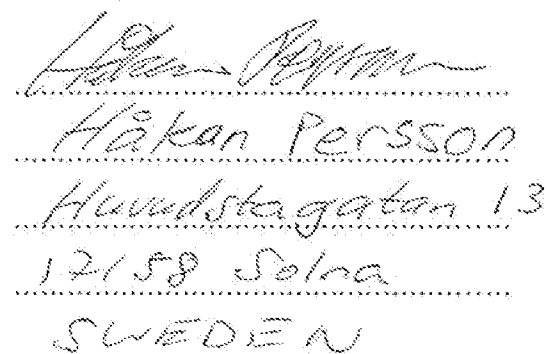 Håkan Persson
Håkan Persson
Huvudstagatan 13
17158 Solna
SWEDEN